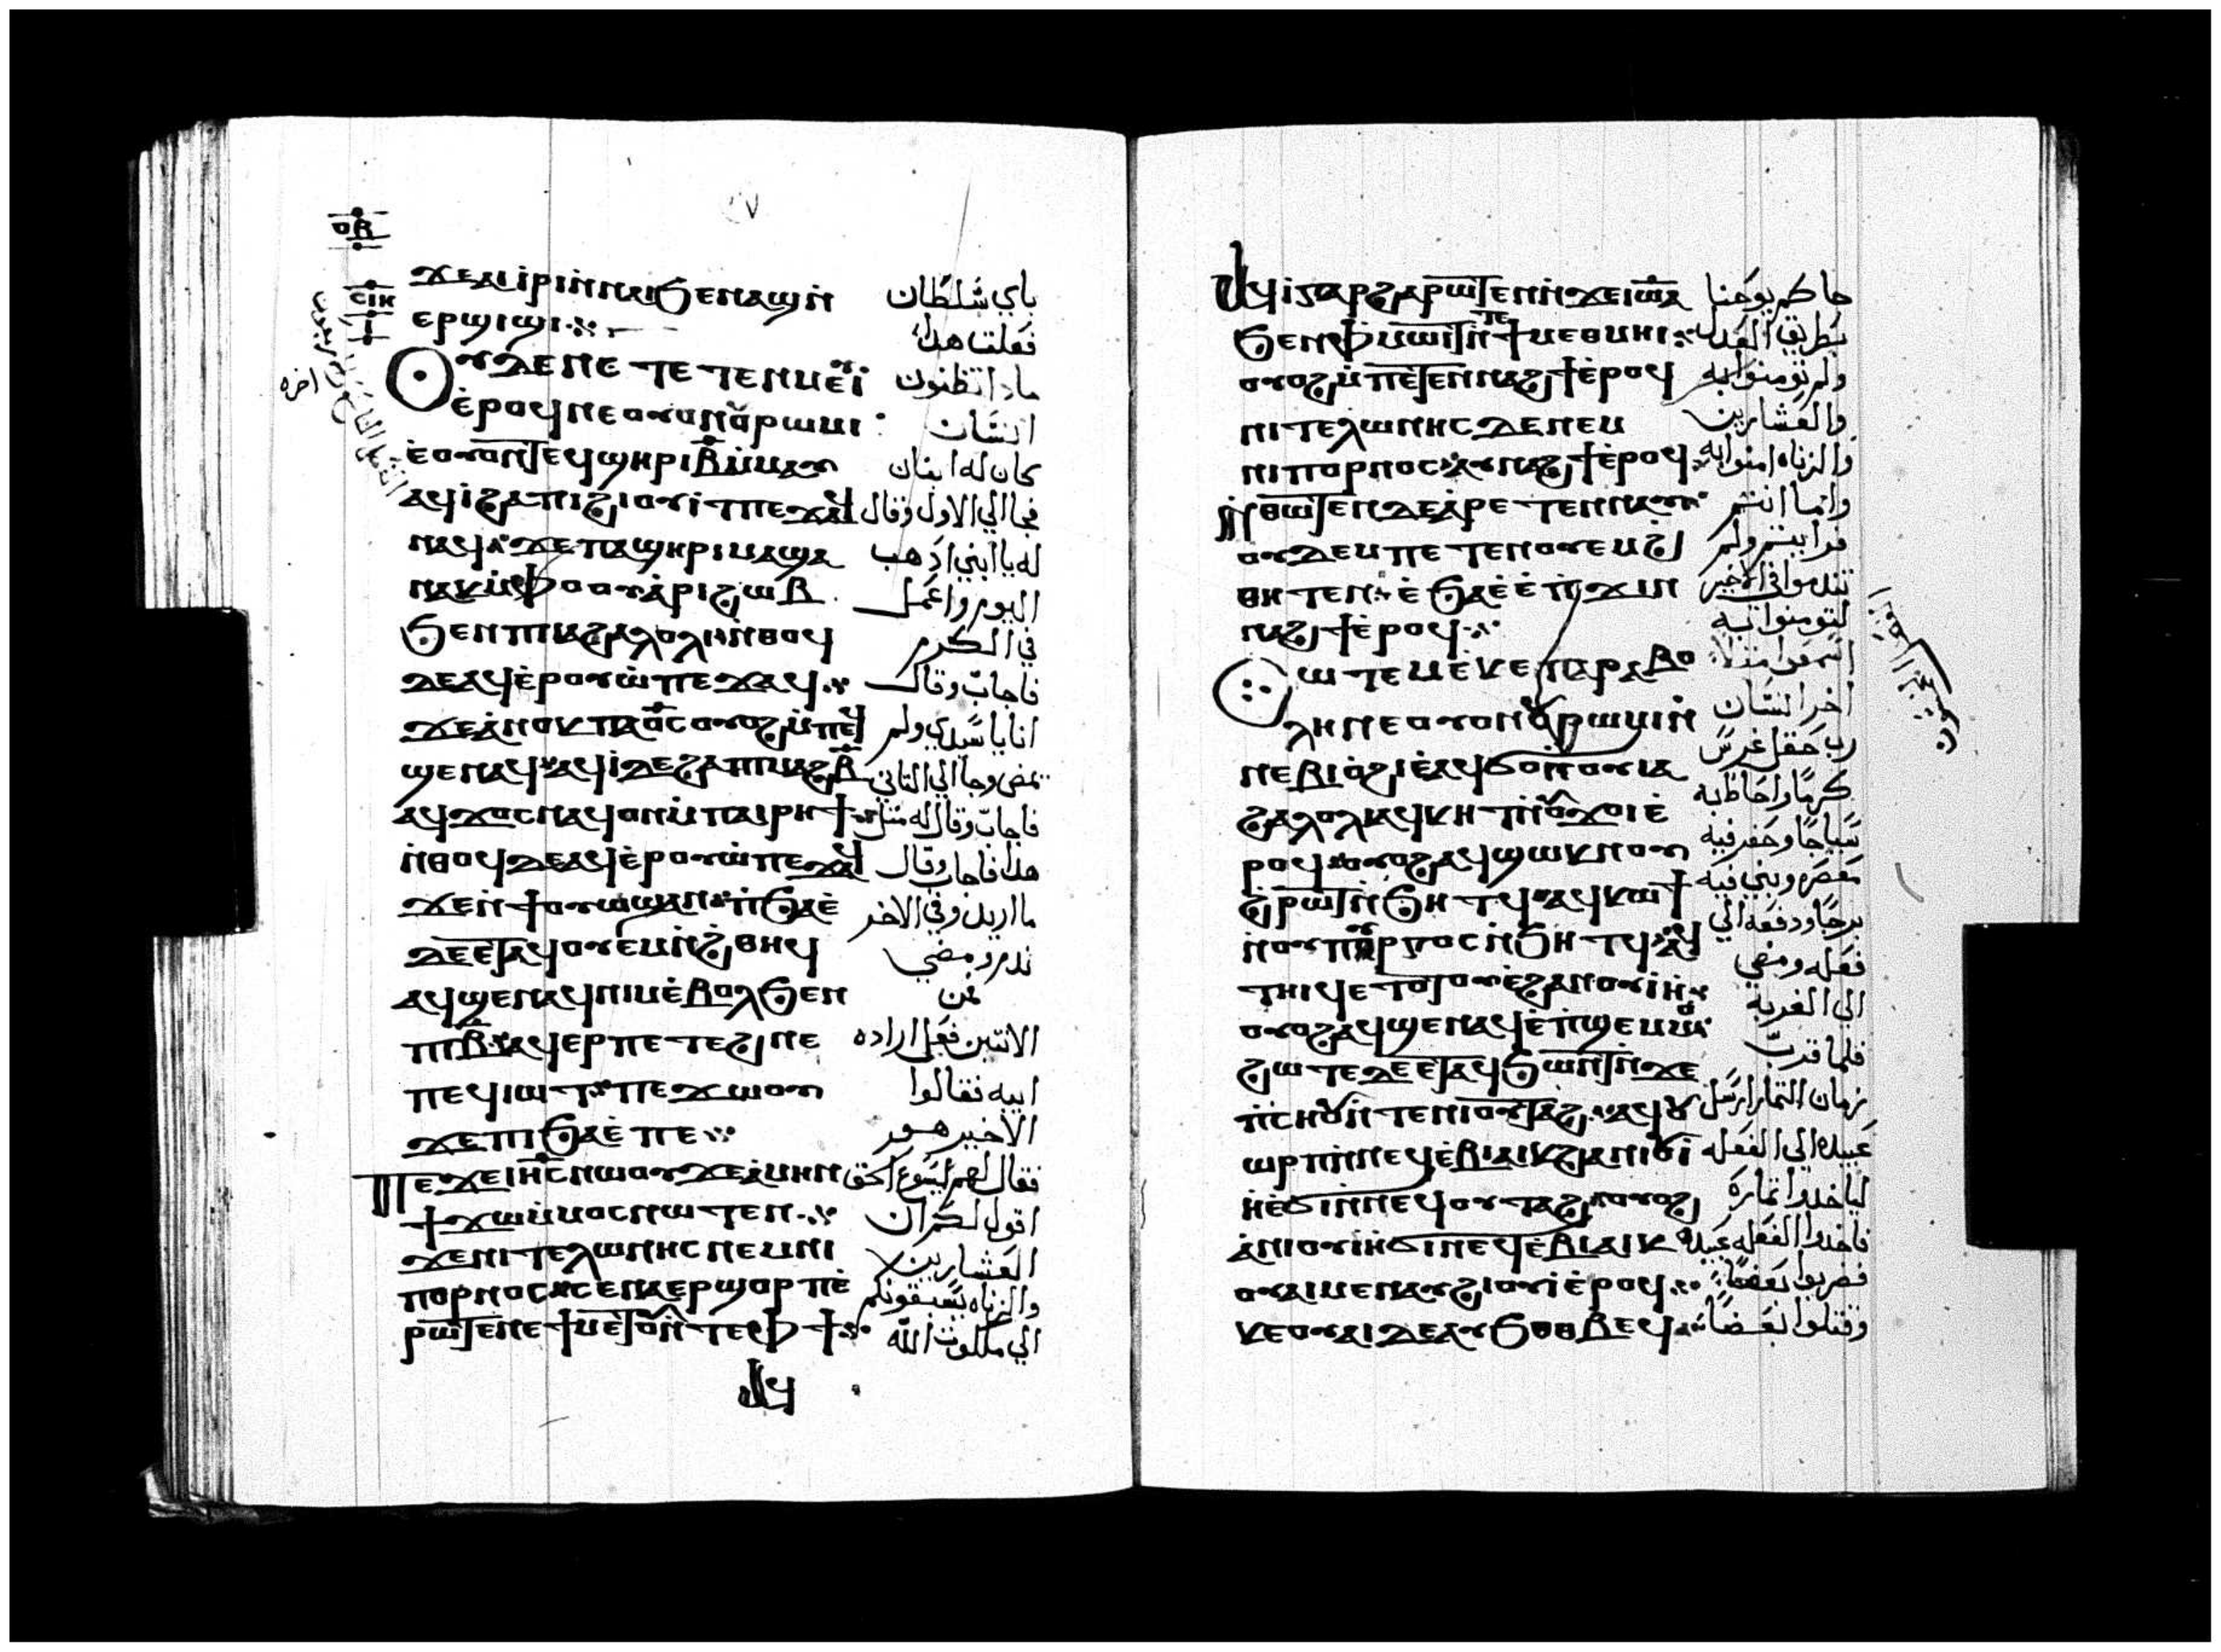 ⲟⲃ
ⲥⲓⲕ
ϫⲉⲁⲓⲓⲣⲓⲛⲛⲁⲓϧⲉⲛⲁϣⲛ̇ باي سلطان
ⲉⲣϣⲓϣⲓ فعلت هذا
ⲟⲩⲇⲉⲡⲉ ⲧⲉⲧⲉⲛⲙⲉⲩⲓ مادا تظنون
ⲉ̇ⲣⲟϥⲛⲉⲟⲩⲟⲛⲟⲩⲣⲱⲙⲓ انسان
ⲉ̇ⲟⲩⲟⲛⲧⲉϥϣⲏⲣⲓⲃ̅ⲙ̇ⲙⲁⲩ كان له ابنان
ⲁϥⲓ̇ϩⲁⲡⲓϩⲟⲩⲓⲧⲡⲉϫⲁϥ فجا الي الاول وقال
ⲛⲁϥϫⲉⲡⲁϣⲏⲣⲓⲙⲁϣⲉ له يا ابني ادهب
ⲛⲁⲕⲙ̇ⲫⲟⲟⲩⲁ̇ⲣⲓϩⲱⲃ اليوم واعمل
ϧⲉⲛⲡⲓⲁϩⲁⲗⲟⲗⲓⲛ̇ⲑⲟϥ في الكرم
ⲇⲉⲁϥⲉ̇ⲣⲟⲩⲱ̇ⲡⲉϫⲁϥ فاجاب وقال
ϫⲉⲁ̇ⲛⲟⲕⲡⲁⲟ̅ⲥⲟⲩⲟϩⲙ̇ⲡⲉϥ انا يا سيدي ولم
ϣⲉⲛⲁϥⲁϥⲓ̇ⲇⲉϩⲁⲡⲓⲙⲁϩⲃ̅ يمض وجا الي التاني
ⲁϥϫⲟⲥⲛⲁϥⲟⲛⲙ̇ⲡⲁⲓⲣⲏϯ فاجاب وقال له مثل
ⲛ̇ⲑⲟϥⲇⲉⲁϥⲉ̇ⲣⲟⲩⲱ̇ⲡⲉϫⲁϥ هدا فاجاب وقال
ϫⲉⲛ̇ϯⲟⲩⲱϣⲁⲛⲉ̇ⲡ̇ϧⲁⲉ̇ ما اريد وفي الاخر
ⲇⲉⲉⲧⲁϥⲟⲩⲉⲙⲛ̇ϩ̇ⲑⲏϥ ندم ومضي
ⲁϥϣⲉⲛⲁϥⲛⲓⲙⲉ̇ⲃⲟⲗϧⲉⲛ فمن
ⲡⲓⲃ̅ⲁϥⲉⲣⲡⲉⲧⲉϩⲛⲉ الاتنين فعل اراده
ⲡⲉϥⲓⲱⲧⲡⲉϫⲱⲟⲩ ابيه فقالوا
ϫⲉⲡⲓϧⲁⲉ̇ⲡⲉ الاخير هو
ⲡⲉϫⲉⲓⲏ̅ⲥⲛⲱⲟⲩϫⲉⲁ̇ⲙⲏⲛ فقال لهم ايسوع الحق
ϯϫⲱⲙ̇ⲙⲟⲥⲛⲱⲧⲉⲛ اقول لكم ان
ϫⲉⲛⲓⲧⲉⲗⲱⲛⲏⲥⲛⲉⲙⲛⲓ العشارين
ⲡⲟⲣⲛⲟⲥⲥⲉⲛⲁⲉⲣϣⲟⲣⲡⲉ̇ والزناه يسبقونكم
ⲣⲱⲧⲉⲛⲉϯⲙⲉⲧⲟⲩⲣⲟⲛ̇ⲧⲉⲫϯ الي ملكوت الله
ⲁϥ
ⲁϥⲓ̇ⲅⲁⲣϩⲁⲣⲱⲧⲉⲛⲛ̇ϫⲉⲓⲱⲁ جاكم يوحنا
ϧⲉⲛⲫⲙⲱⲓⲧⲛ̇ⲧⲉϯⲙⲉⲑⲙⲏⲓ بطريق العدل
ⲟⲩⲟϩⲙ̇ⲡⲉⲧⲉⲛⲛⲁϩϯⲉ̇ⲣⲟϥ ولم تومنوا به
ⲛⲓⲧⲉⲗⲱⲛⲏⲥⲇⲉⲛⲉⲙ والعشارين
ⲛⲓⲡⲟⲣⲛⲟⲥⲁⲩⲛⲁϩϯⲉ̇ⲣⲟϥ والزناه امنوا به
ⲛ̇ⲑⲱⲧⲉⲛⲇⲉⲁ̇ⲣⲉⲧⲉⲛⲛⲁⲩ وانما انتم
ⲟⲩⲇⲉⲙⲡⲉⲧⲉⲛⲟⲩⲉⲙϩ̇ فرايتم ولم
ⲑⲏⲧⲉⲛⲉ̇ϧⲁⲉ̇ⲉ̇ⲡ̇ϫⲓⲛ تندموا في الاخير
ⲛⲁϩϯⲉ̇ⲣⲟϥ لتومنوا به
ⲥⲱⲧⲉⲙⲉ̇ⲕⲉⲡⲁⲣⲁⲃⲟ اسمعوا مثلا
ⲗⲏⲛⲉⲟⲩⲟⲛⲟⲩⲣⲱⲙⲓⲛ̇ اخر انسان
ⲛⲉⲃⲓⲟ̇ϩⲓⲉ̇ⲁϥϭⲟⲛ̇ⲟⲩⲓⲁ رب حقل غرس
ϩⲁⲗⲟⲗⲓⲁϥⲕⲏⲧⲛ̇ⲟⲩϫⲟⲓⲉ̇ كرما واحاط به
ⲣⲟϥⲟⲩⲟϩⲁϥϣⲱⲕⲛⲟⲩ سياجا وحفر فيه
ϩ̇ⲣⲱⲧⲛ̇ϧⲏⲧϥⲁϥⲕⲱϯ معصره وبني فيه
ⲛ̇ⲟⲩⲡⲩⲣⲅⲟⲥⲛ̇ϧⲏⲧϥⲁϥ برجا ودفعه الي
ⲧⲏⲓϥⲉⲧⲟⲧⲟⲩⲉ̇ϩⲁⲛⲟⲩⲓⲏ فعله ومضي
ⲟⲩⲟϩⲁϥϣⲉⲛⲁϥⲉ̇ⲡ̇ϣⲉⲙⲙⲟ الي الغربه
ϩⲱⲧⲉⲇⲉⲉⲧⲁϥϧⲱⲛⲧⲛ̇ϫⲉ فلما قرب
ⲡ̇ⲥⲏⲟⲩⲛ̇ⲧⲉⲛⲓⲟⲩⲧⲁϩⲁϥⲟⲩ زمان التمار ارسل
ⲱⲣⲡⲛ̇ⲛⲉϥⲉ̇ⲃⲓⲁⲓⲕϩⲁⲛⲓⲟⲩⲓ̇ عبيده الي الفعله
ⲏ̇ⲉ̇ϭⲓⲛ̇ⲛⲉϥⲟⲩⲧⲁϩⲟⲩⲟϩ لياخدوا تماره
ⲁ̇ⲛⲓⲟⲩⲓⲏ̇ϭⲓⲛⲉϥⲉ̇ⲃⲓⲁⲓⲕ فاخدوا الفعله عبيده
ⲟⲩⲁⲓⲙⲉⲛⲁⲩϩⲓⲟⲩⲓ̇ⲉ̇ⲣⲟϥ فضربوا بعضا
ⲕⲉⲟⲩⲁⲓⲇⲉⲁⲩϧⲟⲑⲃⲉϥ وقتلوا بعضا